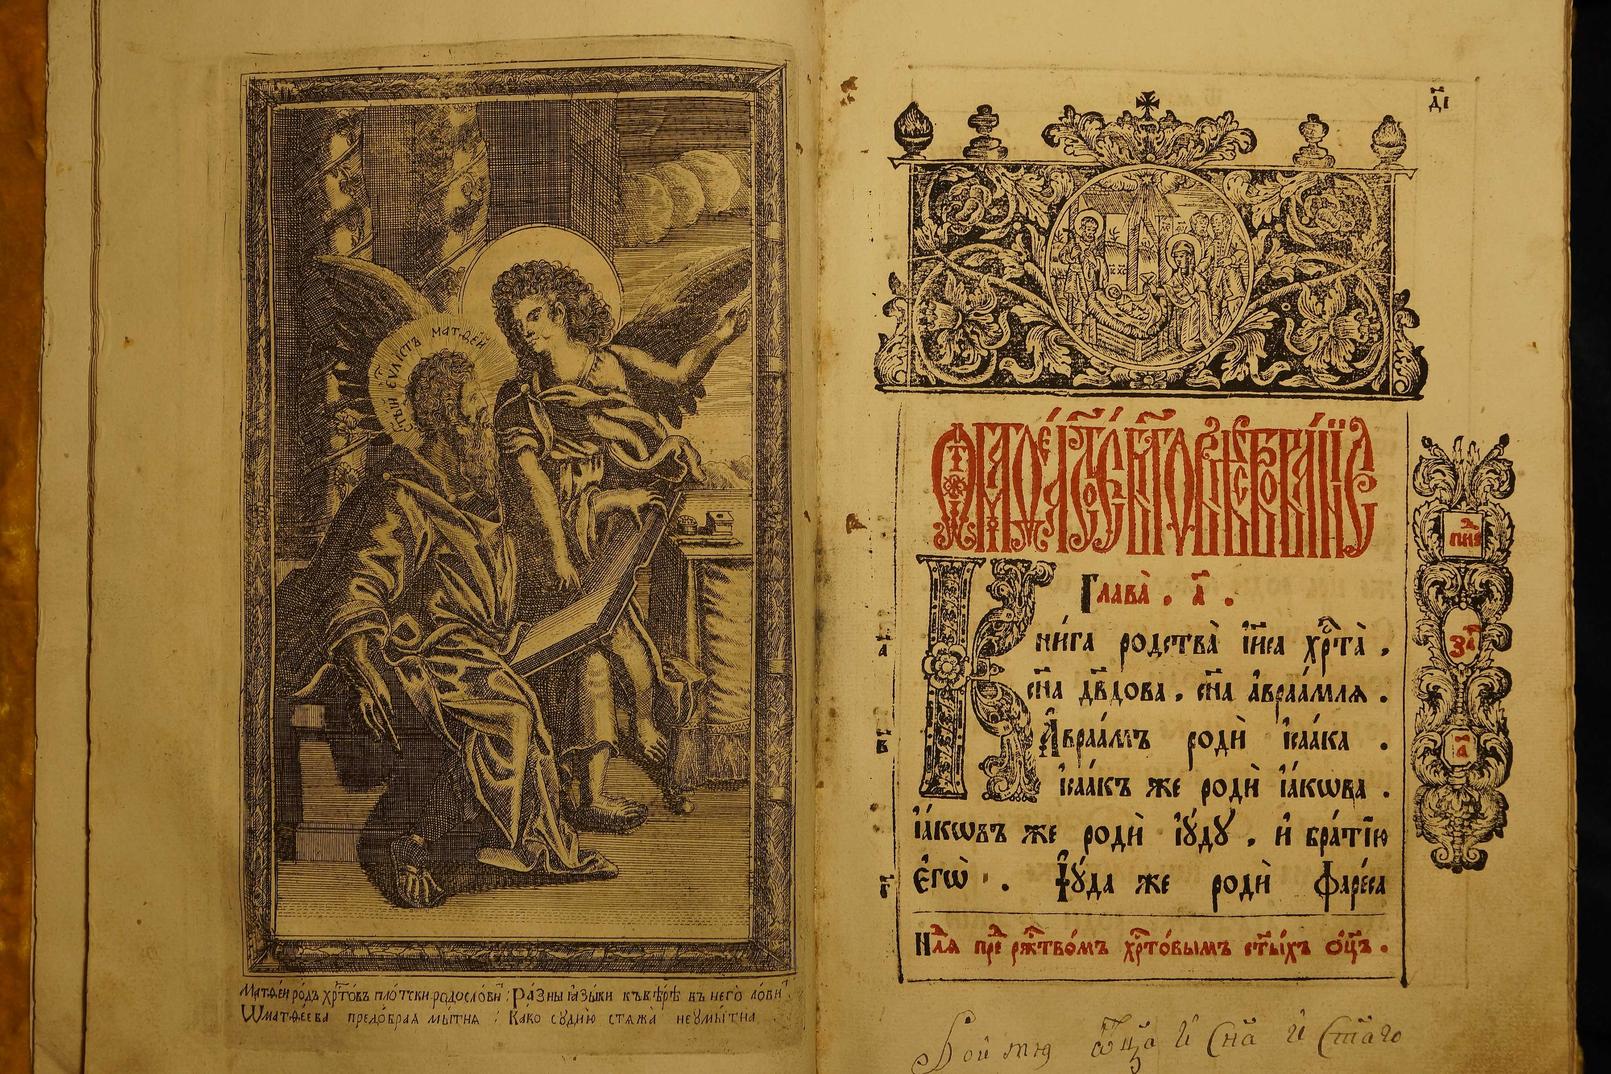 СТ҃ЫЙ ЕѴЛІСТЪ МАТѲЕЙ
Матѳеи ро́дъ хр҃то́въ пло́тски родосло́ви : Ра́зны ꙗ҆зы́ки къ вѣ́рѣ въ него̀ лови
Ѿ матѳеева предо́брая мы́тня : Ка́ко су́дию стяжа неумы́тна
д҃і
Глава̀ . а҃ .
Кни́га родства̀ і҆и҃са хр҃та̀ ,
сн҃а дв҃дова , сн҃а а҆враа́мля .
а
А҆враа́мъ родѝ і҆саа́ка .
в
і҆саа́къ же родѝ і҆а́кѡва .
і҆а́кѡвъ же родѝ і҆ꙋ́дꙋ , и҆ бра́тїю
є҆гѡ̀ . І҆ꙋ́да же родѝ фаре́са
г
Нл҃я пре рж҃тво́мъ хр҃то́вымъ ст҃ы́хъ ѻ҆ц҃ъ .
за҃
а҃
Во имя Ѿца и Сн҃а и Ст҃аго